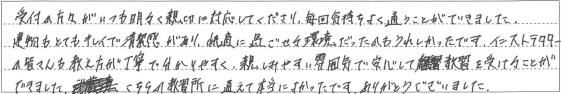 受付の方々がいつも明るく親切に対応してくださり、毎回気持ちよく通うことができました。
建物もとてもキレイで清潔感があり、快適に過ごせる環境だったのもうれしかったです。インストラクター
の皆さんも教え方が丁寧で分かりやすく、親しみやすい雰囲気で安心して教習を受けることが
できました。こちらの教習所に通えて本当によかったです。ありがとうございました。